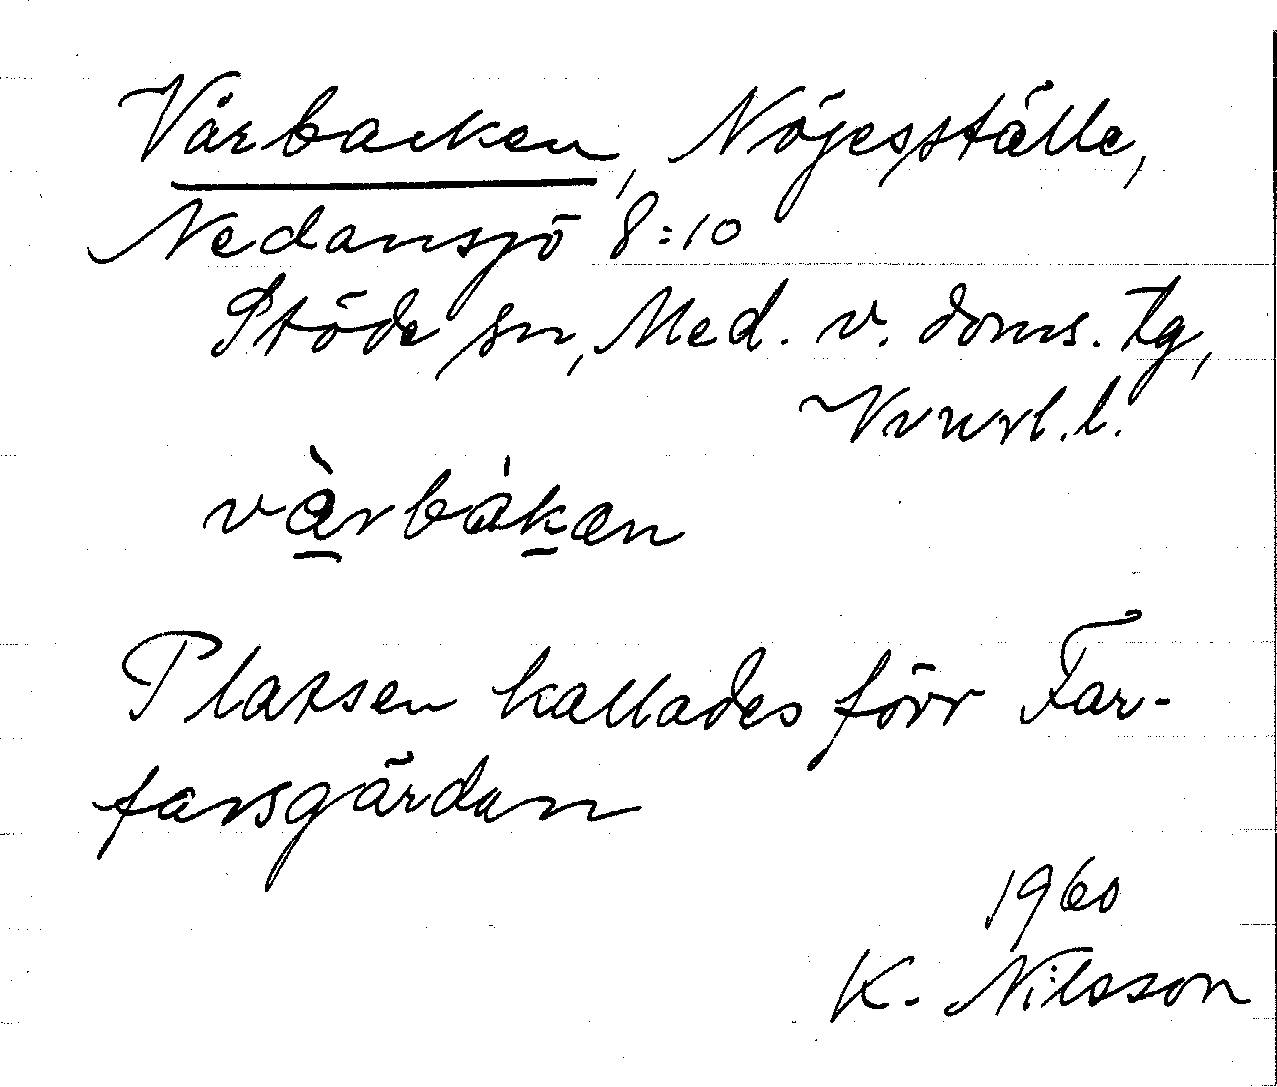 Vårbacken, Nöjesställe,
Nedansjö 8:10
Stöde sn, Med. v. doms. tg,
Vvnrl. l.
vàrbákan
Platsen kallades förr Far-
farsgårdan
1960
K. Nilsson